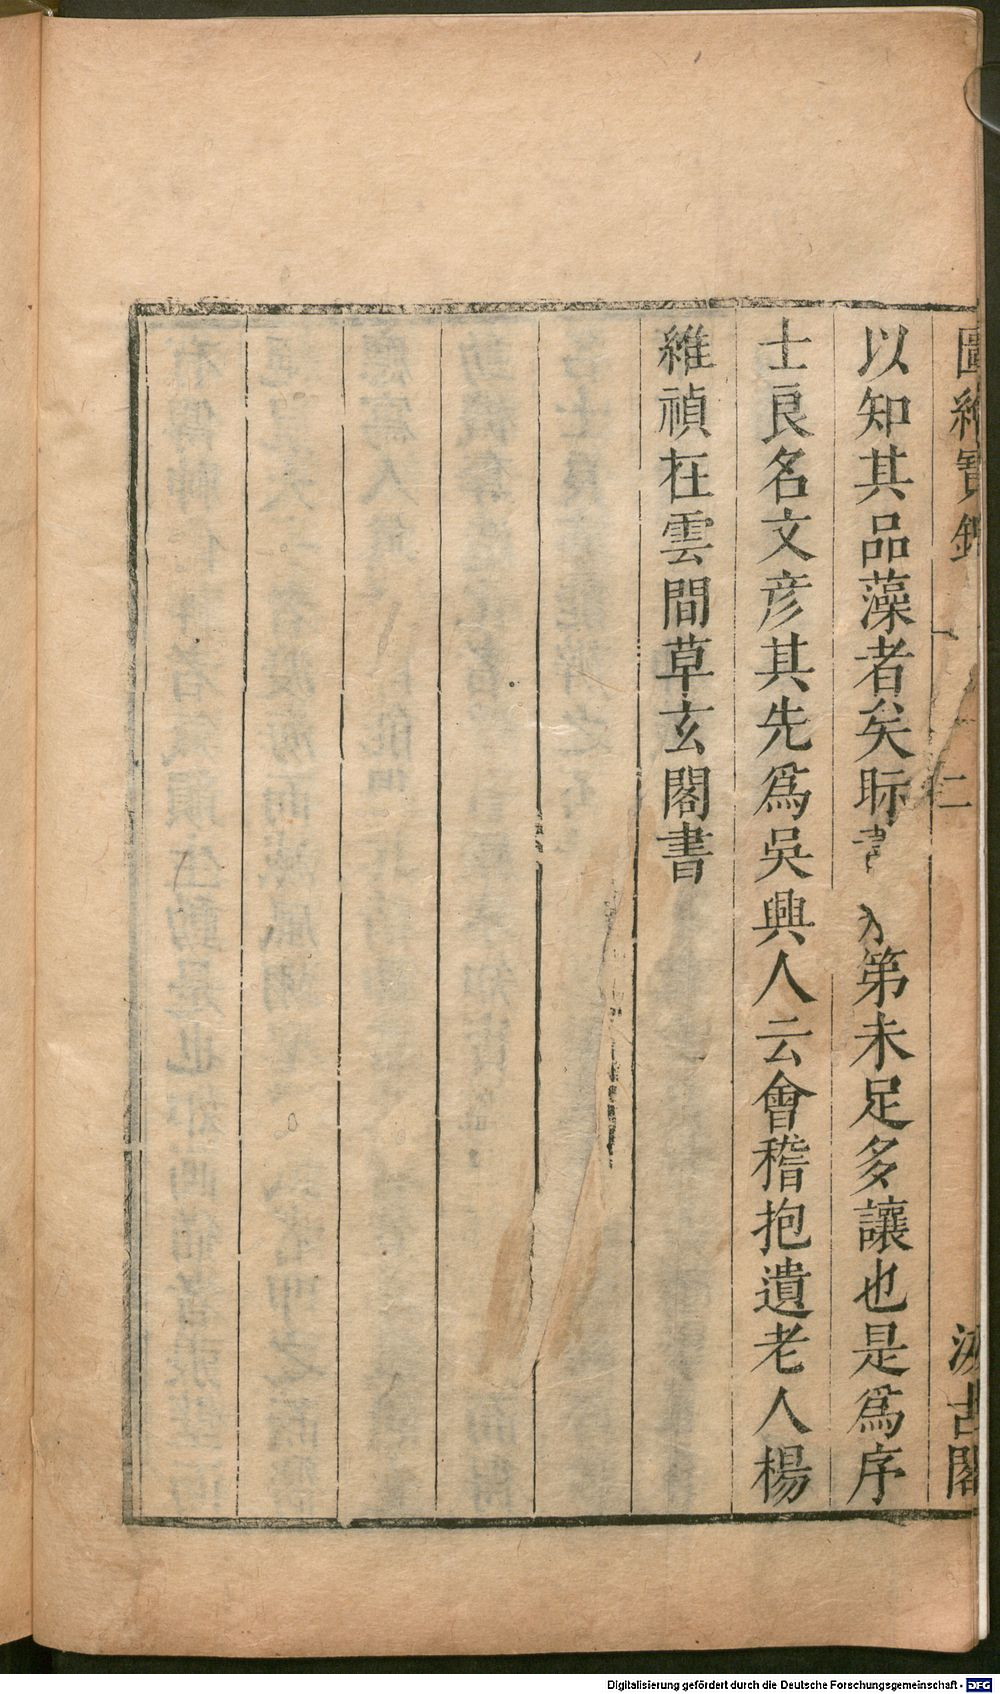 圖繪寶鑑
二
汲古閣
以知其品藻者矣眎 第未足多讓也是爲序
士良名文彦其先爲吳興人云會稽抱遺老人楊
維禎在雲間草玄閣書
Digitalisierung gefördert durch die Deutsche Forschungsgemeinschaft - DFG